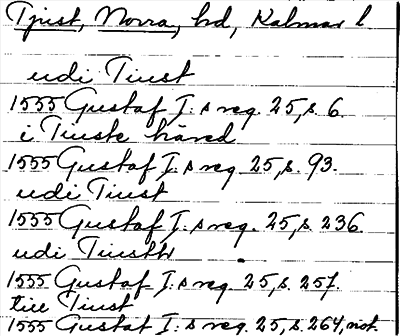 Tjust, Norra, hd, Kalmar l
udi Tiust
1555 Gustaf I:s reg. 25, s. 6.
i Tiuste häred
1555 Gustaf I:s reg. 25, s. 93.
udi Tiust
1555 Gustaf I:s reg. 25, s. 236
udi Tiustt
1555 Gustaf I:s reg. 25, s. 257.
till Tiust
1555 Gustaf I:s reg. 25, s. 264, not